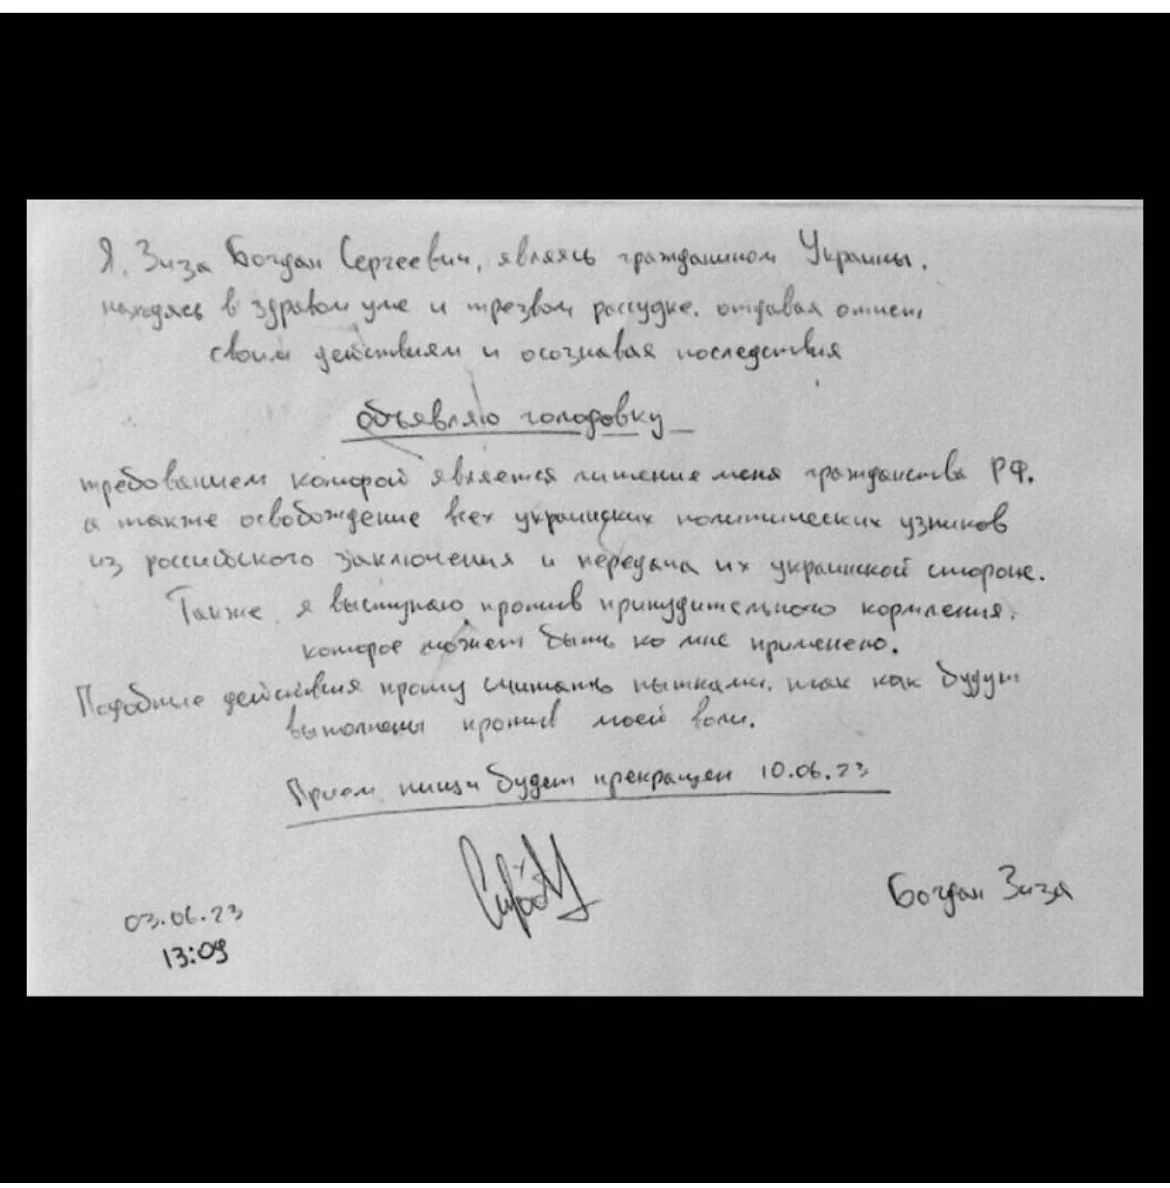 Я, Зиза Богдан Сергеевич, являясь гражданином Украины,
находясь в здравом уме и трезвом рассудке, отдавая отчет
своим действиям и осознавая последствия
объявляю голодовку
требованием которой является лишение меня гражданства РФ,
а также освобождение всех украинских политических узников
из российского заключения и передача их украинской стороне.
Также я выступаю против принудительного кормления,
которое может быть ко мне применено.
Подобные действия прошу считать пытками, так как будут
выполнены против моей воли.
Прием пищи будет прекращен 10.06.23
03.06.23
13:09
Богдан Зиза